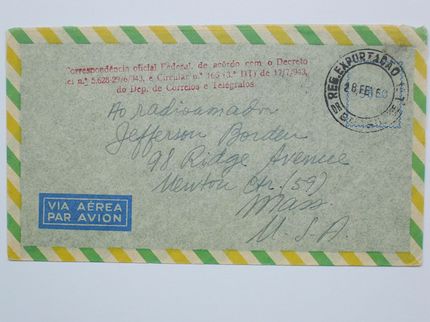 Correspondência oficial Federal, de acôrdo com o Decreto
lei n.º 5.628-29/6/943, e Circular n.º 165 (3.ª DT) de 17/7/943,
do Dep. de Correios e Telégrafos.
REG. EXPORTAÇÃO
28 FEV
Ao radioamador
Jefferson Borden
98 Ridge Avenue
Newton Ctr. (59)
Mass.
U.S.A.
VIA AÉREA
PAR AVION